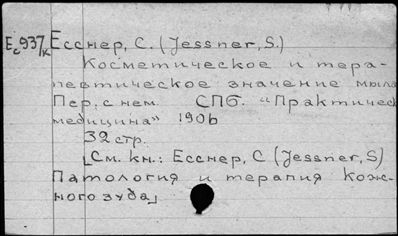 Ес937/к Есснер, С. (Jessner, S.)
Косметическое и тера-
певтическое значение мыла
Пер. с нем. СПб. "Практическ
медицина" 1906
32 стр.
[См. кн.: Есснер, С (Jessner, S)
Патология и терапия кож-
ного зуда]